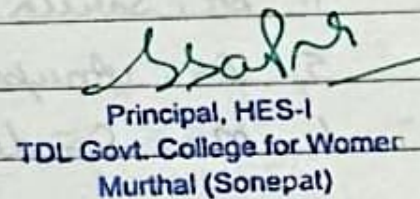 Principal, HES-I
TDL Govt. College for Women
Murthal (Sonepat)